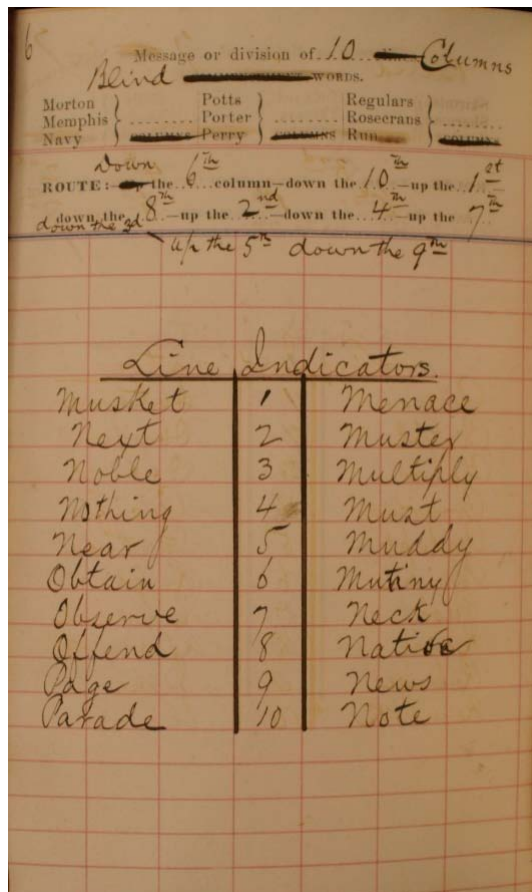 6
Message or division of 10 Columns
Blind WORDS.
Morton } Potts } Regulars }
Memphis } ........ Porter } ........ Rosecrans }
Navy } COLUMNS Perry } COLUMNS Run } COLUMN
ROUTE: Down the 6th column—down the 10th—up the 1st
down the 8th—up the 2nd—down the 4th—up the 7th
down the 3d up the 5th down the 9th
Line Indicators.
Musket 1 Menace
Next 2 Muster
Noble 3 Multiply
Nothing 4 Must
Near 5 Muddy
Obtain 6 Mutiny
Observe 7 Neck
Offend 8 Native
Page 9 News
Parade 10 Note